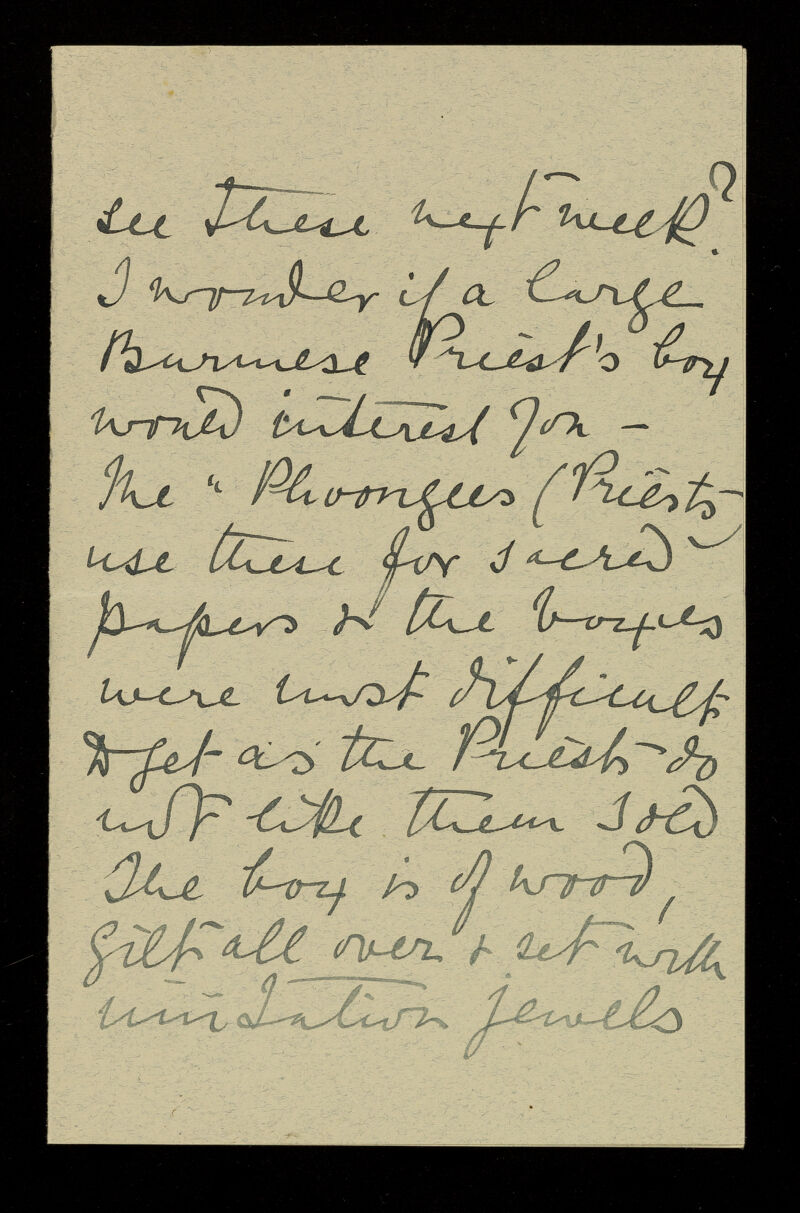 see these next week?
I wonder if a large
Burmese Priest's box
would interest you –
The " Phoongees (Priests)
use these for sacred
papers & the boxes
were most difficult
to get as the Priests do
not like them sold
The box is of wood,
gilt all over & set with
imitation jewels